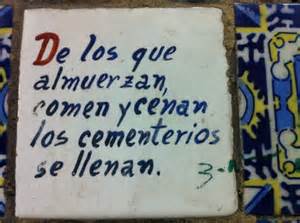 De los que
almuerzan,
comen y cenan
los cementerios
se llenan.